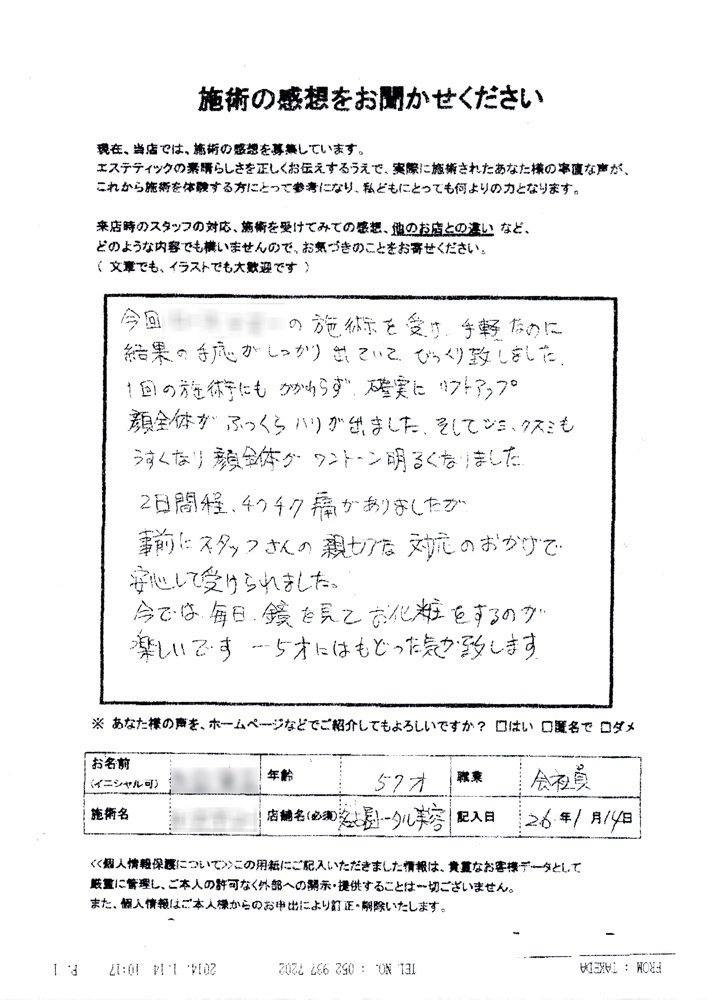 施術の感想をお聞かせください
現在、当店では、施術の感想を募集しています。
エステティックの素晴らしさを正しくお伝えするうえで、実際に施術されたあなた様の率直な声が、
これから施術を体験する方にとって参考になり、私どもにとっても何よりの力となります。
来店時のスタッフの対応、施術を受けてみての感想、他のお店との違い など、
どのような内容でも構いませんので、お気づきのことをお寄せください。
( 文章でも、イラストでも大歓迎です )
今回 の 施術を受け、手軽なのに
結果の手応がしっかり出ていて、びっくり致しました。
1回の施術にもかかわらず、確実にリフトアップ
顔全体が ふっくらハリが出ました、そしてシミ、クスミも
うすくなり顔全体がワントーン明るくなりました
2日間程、チクチク痛がありましたが
事前にスタッフさんの親切な対応のおかげで
安心して受けられました。
今では、毎日、鏡を見てお化粧をするのが
楽しいです −5才にはもどった気が致します
※ あなた様の声を、ホームページなどでご紹介してもよろしいですか? □はい □匿名で □ダメ
お名前
(イニシャル可)
年齢 57才 職業 会社員
施術名 店舗名(必須) 名古屋トータル美容 記入日 26年1月14日
<<個人情報保護について>>この用紙にご記入いただきました情報は、貴重なお客様データとして
厳重に管理し、ご本人の許可なく外部への開示・提供することは一切ございません。
また、個人情報はご本人様からのお申出により訂正・削除いたします。
FROM : TAKEDA TEL NO. : 052 937 7202 2014. 1.14 10:17 P. 1